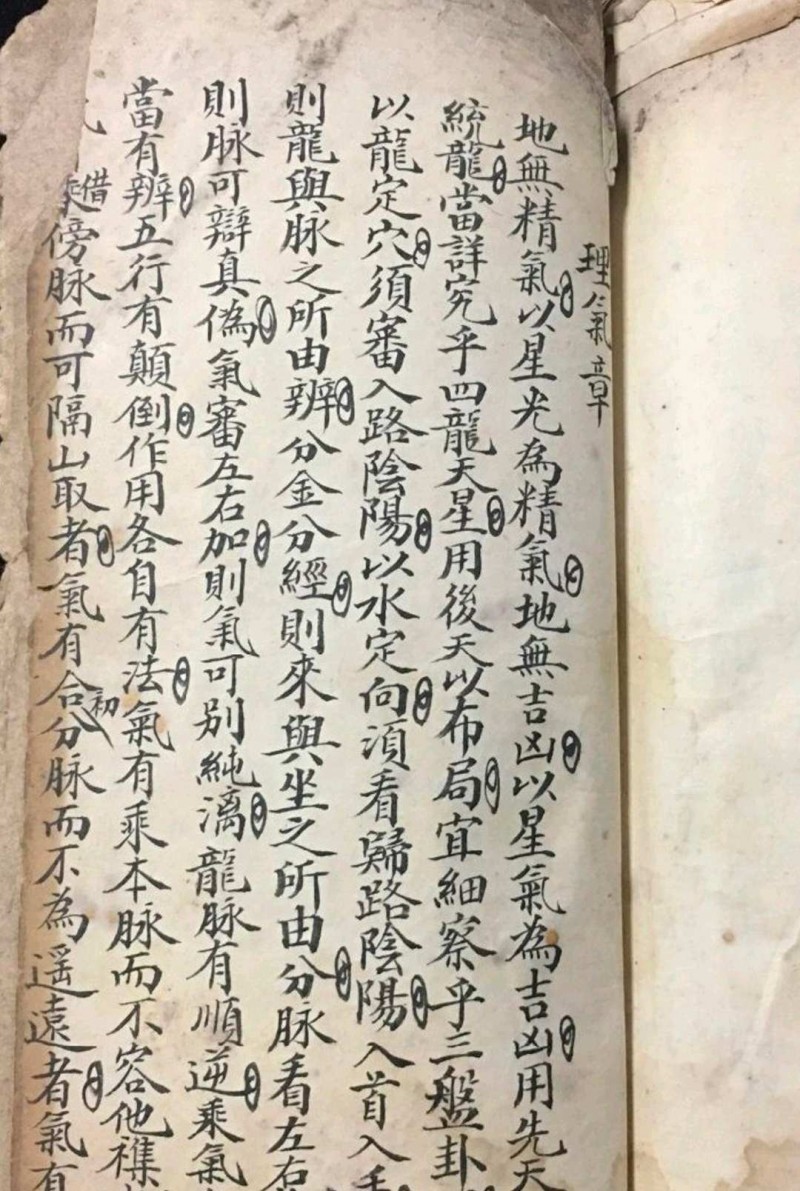 理氣章
地無精氣以星光為精氣地無吉凶以星氣為吉凶用先天
統龍當詳究乎四龍天星用後天以布局宜細察乎三盤卦
以龍定穴須審入路陰陽以水定向湏看歸路陰陽入首入
則龍與脉之所由辨分金分經則來與坐之所由分脉看左右
則脉可辯真偽氣審左右加則氣可别純漓龍脉有順逆乘氣
當有辨五行有顛倒作用各自有法氣有乘本脉而不容他襍
借傍脉而可隔山取者氣有合初分脉而不為遥遠者氣有